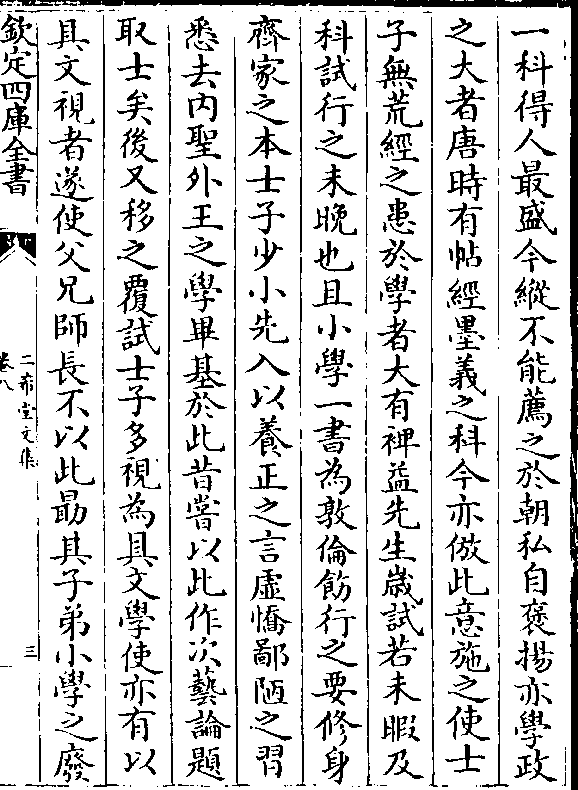 一科得人最盛今縱不能薦之於朝私自褒揚亦學政
之大者唐時有帖經墨義之科今亦倣此意施之使士
子無荒經之患於學者大有裨益先生歲試若未暇及
科試行之未晚也且小學一書為敦倫飭行之要修身
齊家之本士子少小先入以養正之言虛憍鄙陋之習
悉去内聖外王之學畢基於此昔嘗以此作次藝論題
取士矣後又移之覆試士子多視為具文學使亦有以
具文視者遂使父兄師長不以此勗其子弟小學之廢
欽定四庫全書
二希堂文集
卷八
三